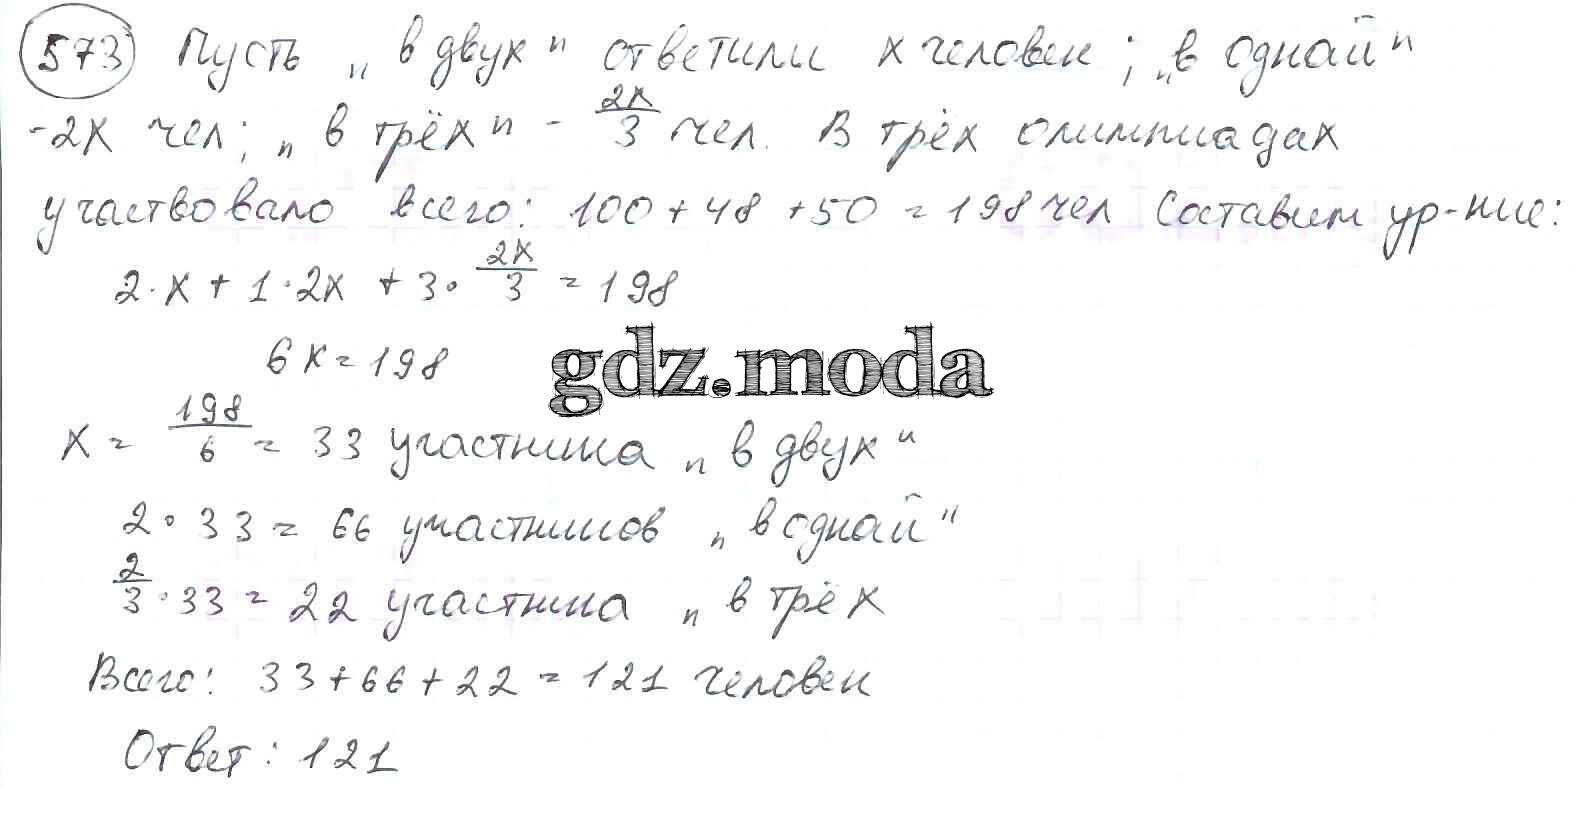 573 Пусть „в двух" ответили x человек; „в одной"
-2x чел; „в трёх" - 2x/3 чел. В трёх олимпиадах
участвовало всего: 100 + 48 + 50 = 198 чел Составим ур-ние:
2·x + 1·2x + 3·2x/3 = 198
6x = 198
gdz.moda
x = 198/6 = 33 участника „в двух"
2·33 = 66 участников „в одной"
2/3·33 = 22 участника „в трёх
Всего: 33 + 66 + 22 = 121 человек
Ответ: 121